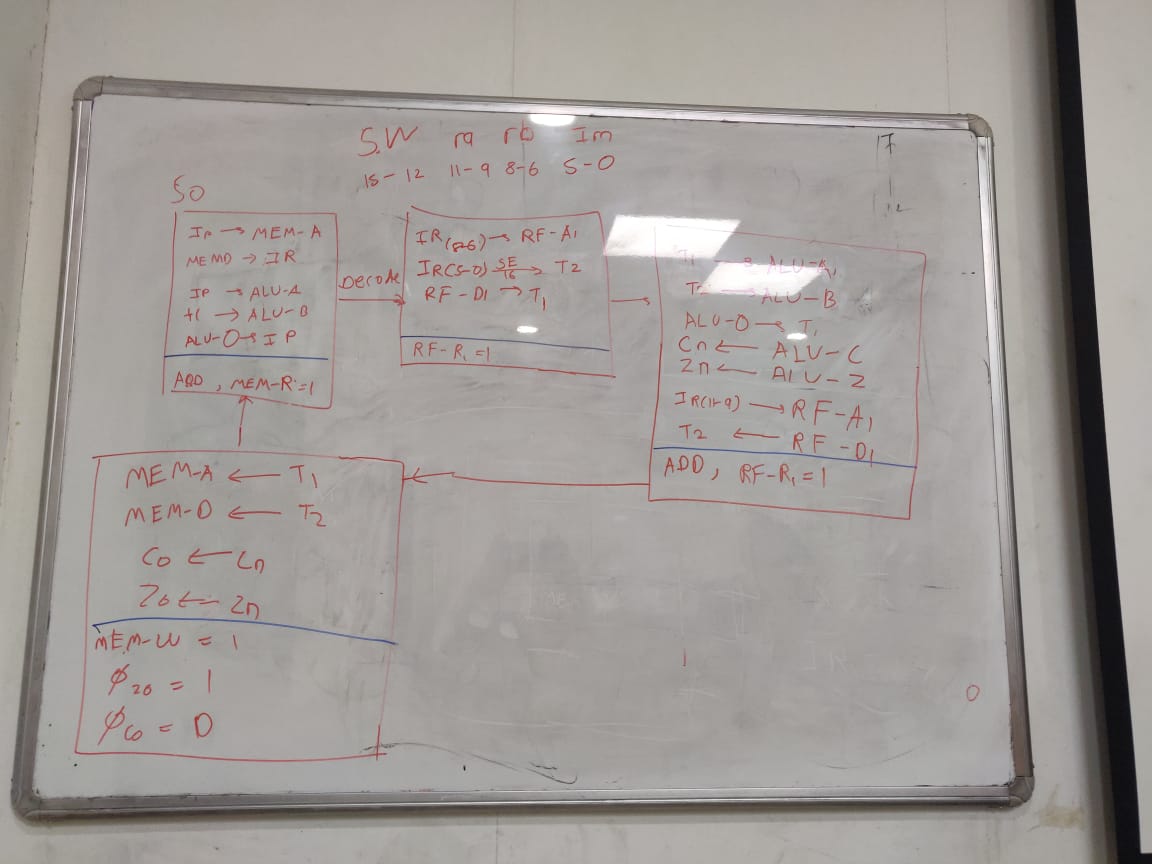 S.W ra rb Im
15-12 11-9 8-6 5-0
S0
IP → MEM-A
MEMD → IR
IP → ALU-A
+1 → ALU-B
ALU-O → IP
ADD, MEM-R=1
Decode
IR(8-6) → RF-A1
IR(5-0) SE 16 → T2
RF-D1 → T1
RF-R1=1
T1 → ALU-A
T2 → ALU-B
ALU-O → T1
Cn ← ALU-C
Zn ← ALU-Z
IR(11-9) → RF-A1
T2 ← RF-D1
ADD, RF-R1=1
MEM-A ← T1
MEM-D ← T2
Co ← Cn
Zo ← Zn
MEM-W = 1
φZo = 1
φCo = D